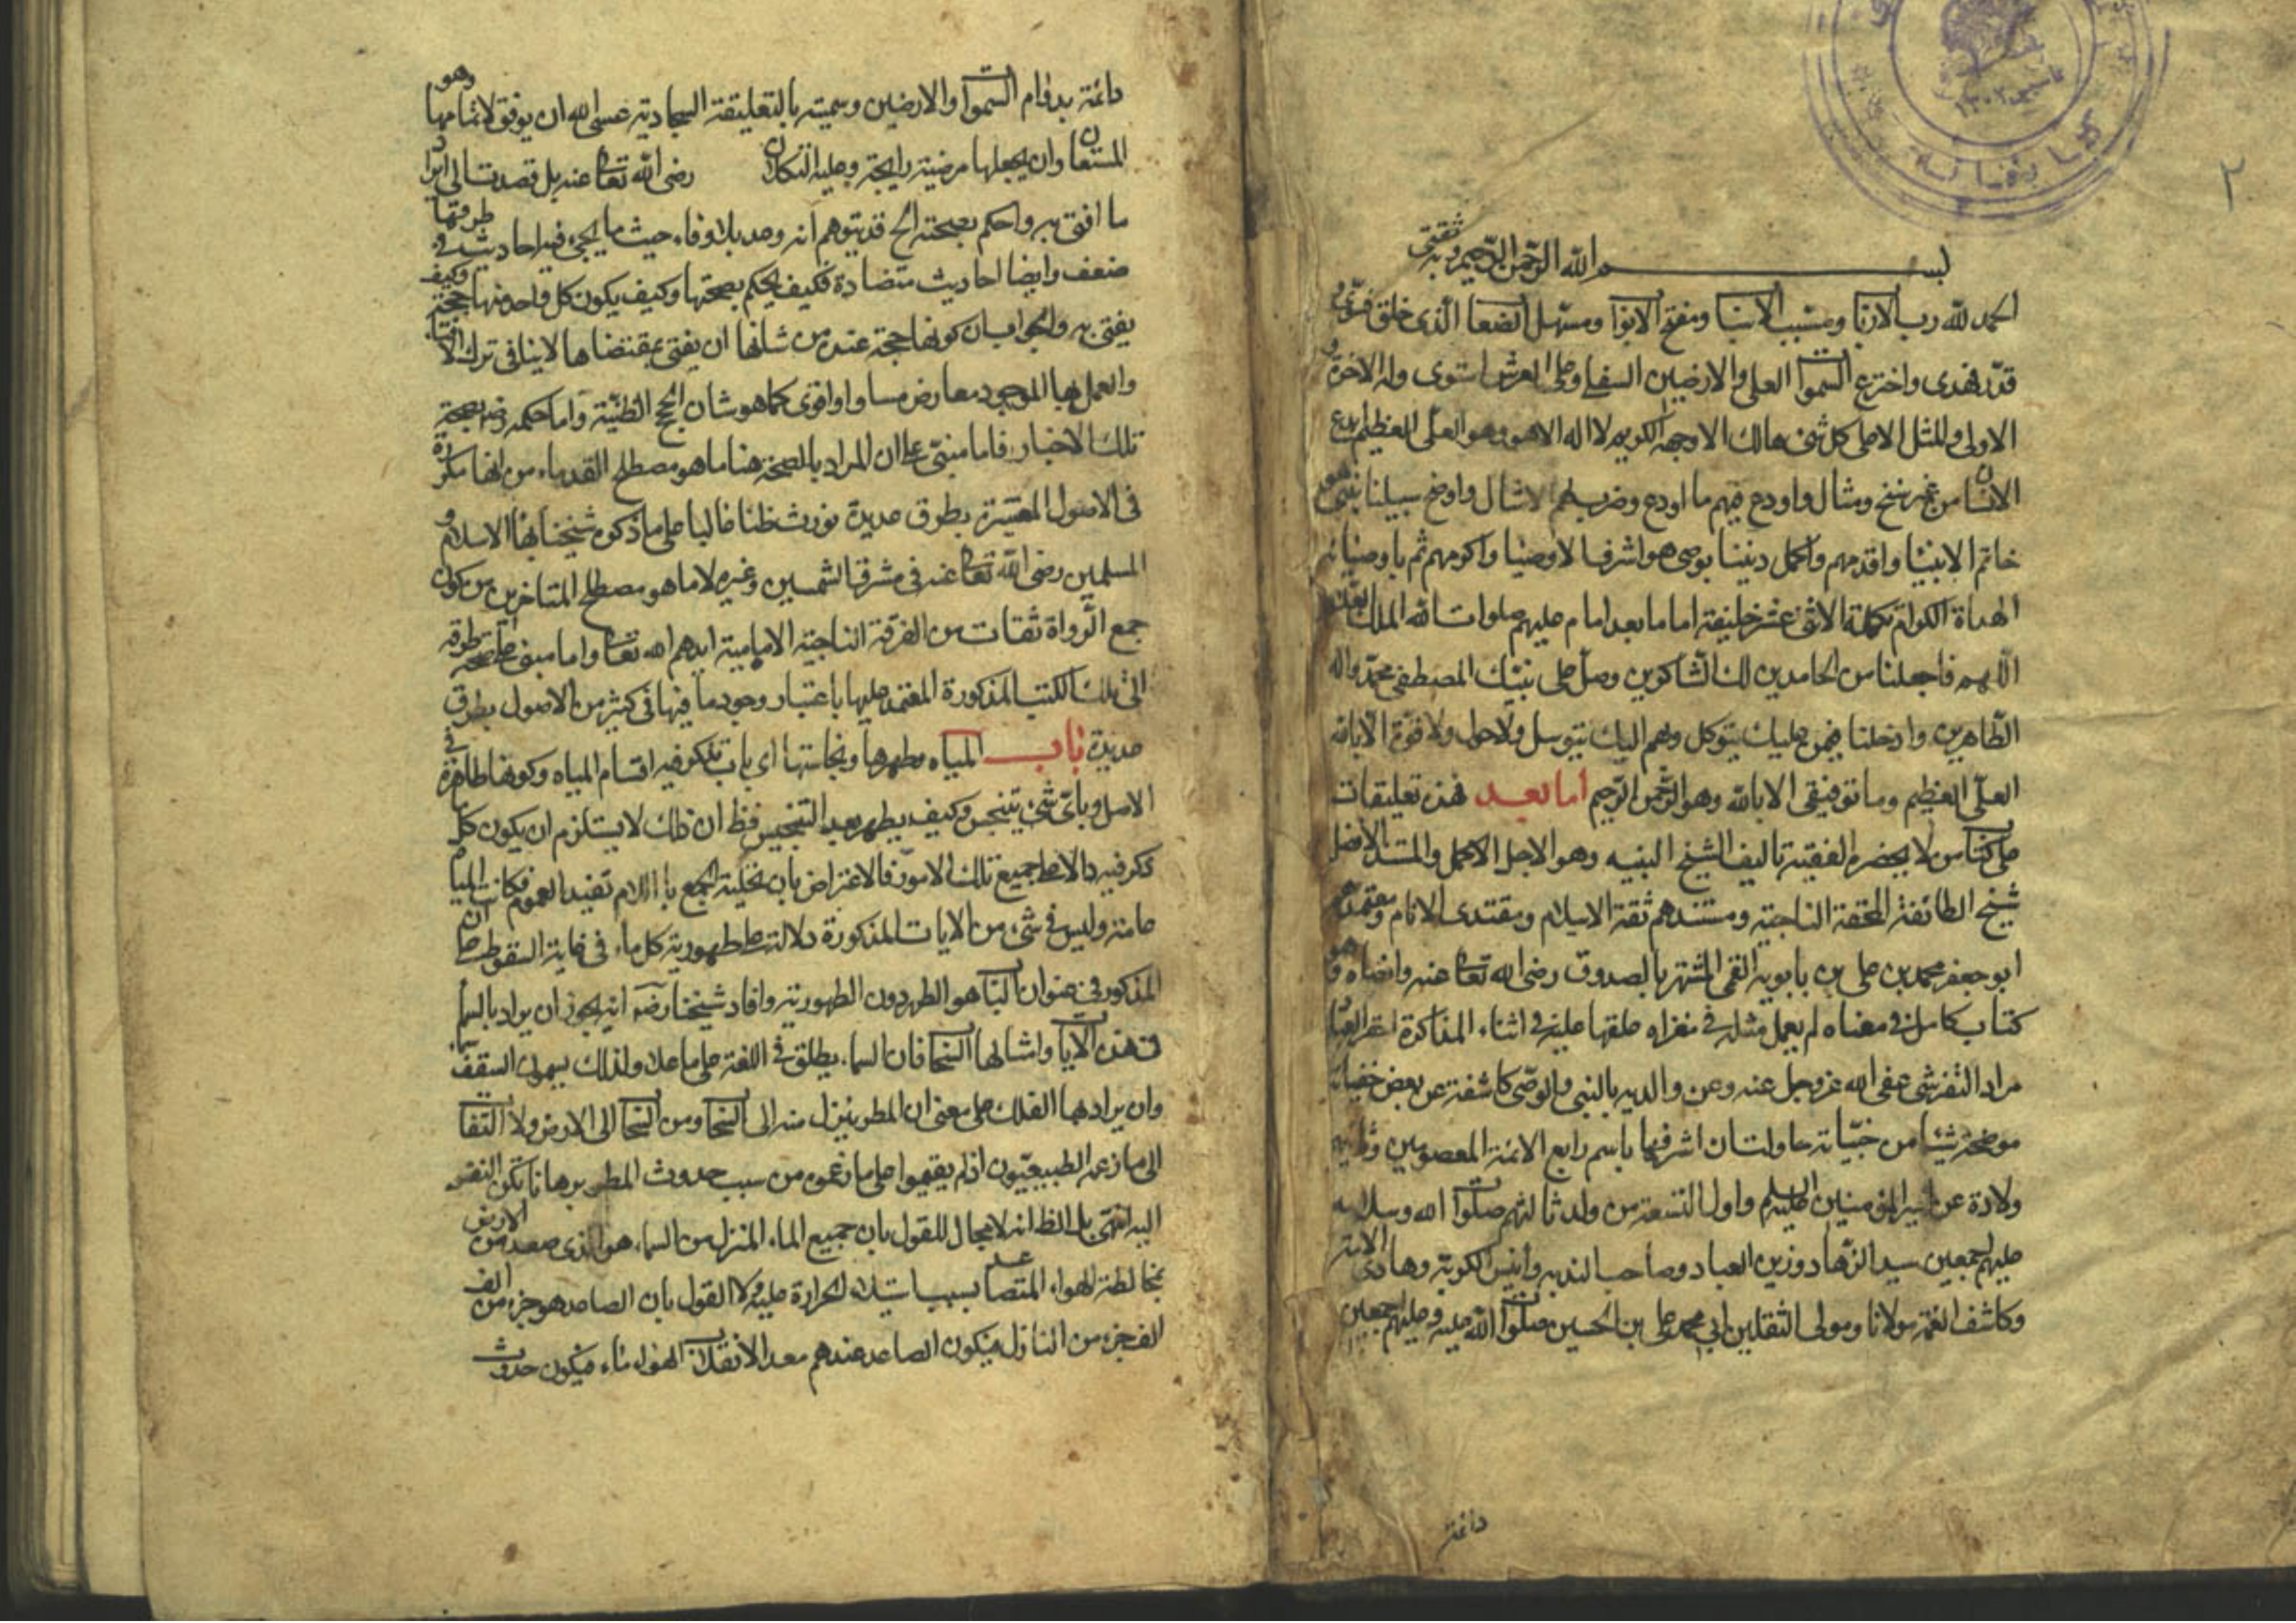 ٢
بسم الله الرحمن الرحيم وبه ثقتي
الحمد لله رب الاربا ومسبب الاسبا ومفتح الابوا ومسهل الصعا الذى خلق فسوى و
قدر فهدى واخترع السموا العلى والارضين السفلى وعلى العرش استوى وله الاخرة و
الاولى والمثل الاعلى كل شئ هالك الا وجهه الكريم لا اله الا هو وهو العلى العظيم ابدع
الانسا من غير سنخ ومثال واودع فيهم ما اودع وضرب لهم الامثال واوضح سبيلنا بنبى هو
خاتم الانبيا واقدمهم واكمل ديننا بوصى هو اشرف الاوصيا واكرمهم ثم باوصيائه
الهداة الكرام تكملة الاثنى عشر خليفة اماما بعد امام عليهم صلوات الله الملك العلام
اللهم فاجعلنا من الحامدين لك الشاكرين وصل على نبيك المصطفى محمد واله
الطاهرين وادخلنا فيمن عليك يتوكل وبهم اليك يتوسل ولا حول ولا قوة الا بالله
العلى العظيم وما توفيقى الا بالله وهو الرحمن الرحيم اما بعد فهذه تعليقات
على كتاب من لا يحضره الفقيه تاليف الشيخ النبيه وهو الاجل الاكمل والمسند الافضل
شيخ الطائفة المحقة الناجية ومستندهم ثقة الاسلام ومقتدى الانام ومعتمدهم
ابو جعفر محمد بن على بن بابويه القمى المشتهر بالصدوق رضى الله تعا عنه وارضاه وهو
كتاب كامل فى معناه لم يعمل مثله فى مغزاه علقها عليه فى اثناء المذاكرة افقر العبا
مراد التفرشى عفى الله عز وجل عنه وعن والديه بالنبى والوصى كاشفة عن بعض خفياته
موضحة شيئا من خبيأته حاولت ان اشرفها باسم رابع الائمة المعصومين وثانيه
ولادة عن امير المؤمنين عليهم السلام واول التسعة من ولد ثالثهم صلوا الله وسلامه
عليهم اجمعين سيد الزهاد وزين العباد وصاحب الندبه وانيس الكربة وهادى الامة
وكاشف الغمة مولانا ومولى الثقلين ابى محمد على بن الحسين صلوا الله عليه وعليهم اجمعين
دائمة
دائمة بدوام السموا والارضين وسميته بالتعليقة السجادية عسى الله ان يوفق لاتمامها وهو
المستعان وان يجعلها مرضية رايجة وعليه التكلان رضى الله تعا عنه بل قصدت الى ايراد
ما افتى به واحكم بصحته الخ قد يتوهم انه وعد بلا وفاء حيث ما يجئ فيه احاديث فى طرقها
ضعف وايضا احاديث متضادة فكيف يحكم بصحتها وكيف يكون كل واحد منها حجة وكيف
يفتى به والجواب ان كونها حجة عنده من شانها ان يفتى بمقتضاها لا ينافى ترك الافتاء
والعمل بها الموجود معارض مساو او اقوى كما هو شان الحجج الظنية واما حكمه رضه بصحة
تلك الاخبار فاما مبنى على ان المراد بالصحة هنا ما هو مصطلح القدماء من انها مكررة
فى الاصول المعتبرة بطرق عديدة يورث ظنا غالبا على ما ذكره شيخنا بهأ الاسلام و
المسلمين رضى الله تعا عنه فى مشرق الشمسين وغيره لا ما هو مصطلح المتاخرين من كون
جمع الرواة ثقات من الفرقة الناجية الامامية ايدهم الله تعا واما مبنى على صحة طرقه
الى تلك الكتب المذكورة المعتمد عليها باعتبار وجود ما فيها فى كثير من الاصول بطرق
عديدة باب المياه وطهرها ونجاستها اى باب يذكر فيه اقسام المياه وكونها طاهرة فى
الاصل وباى شئ يتنجس وكيف يطهر بعد التنجيس فظ ان ذلك لا يستلزم ان يكون كل ما
ذكر فيه دالا على جميع تلك الامور فالاعتراض بان تحلية الجمع باللام تفيد العموم فكانت المياه
عامة وليس فى شئ من الايات المذكورة دلالة على طهورية كل ماء فى غاية السقوط على ان
المذكور فى عنوان البا هو الطهر دون الطهورية وافاد شيخنا رضه انه يجوز ان يراد بالسما
فى هذه الايا وامثالها السحا فان السماء يطلق فى اللغة على ما علاك ولذلك يسمون السقف سماء
وان يراد بها الفلك على معنى ان المطر ينزل منه الى السحا ومن السحا الى الارض ولا التفا
الى ما زعمه الطبيعيون اذ لم يقيموا على ما زعموه من سبب حدوث المطر برهانا تكن النفس
اليه انتهى بل الظ انه لا مجال للقول بان جميع الماء المنزل من السماء هو الذى صعد من الارض
بمخالطة الهواء المتصاعد بسبب استيلاء الحرارة عليه ولا القول بان الصاعد هو جزء من الف
الف جزء من النازل فيكون الصاعد عندهم معد الانقلاب الهواء ماء فيكون حدوث